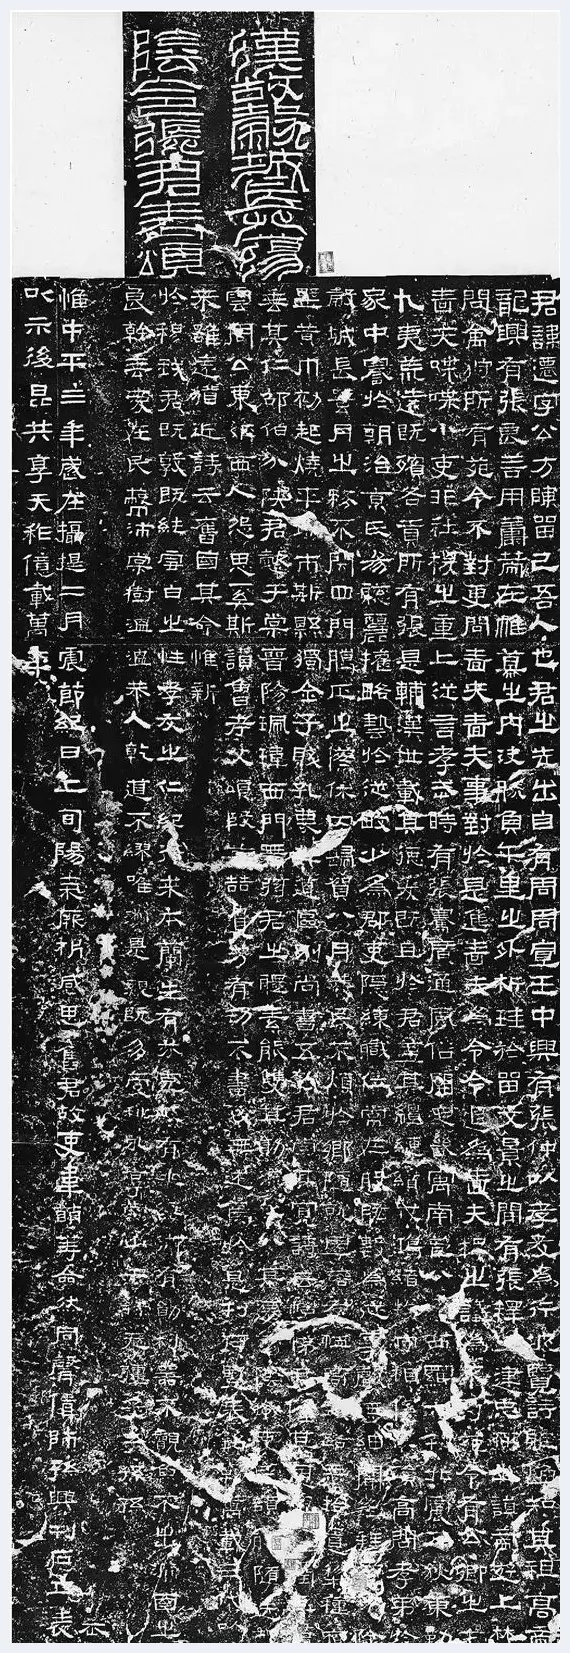 漢故穀城長蕩
陰令張君表頌
君諱遷字公方陳留己吾人也君之先出自有周周宣王中興有張仲以孝友為行披覽詩雅煥知其祖高帝
龍興有張良善用籌策在帷幕之內決勝負千里之外析珪於留文景之間有張釋之建忠弼之謨帝遊上林
問禽狩所有苑令不對更問嗇夫嗇夫事對於是進嗇夫為令令退為嗇夫釋之議為不可苑令有公卿之才
嗇夫喋喋小吏非社稷之重上從言孝武時有張騫廣通風俗開定畿寓南苞八蠻西羈六戎北震五狄東勤
九夷荒遠既殯各貢所有張是輔漢世載其德爰既且於君蓋其繵縺纘戎鴻緒牧守相係不殞高問孝弟於
家中謇於朝治京氏易聰麗權略藝於從畋少為郡吏隱練職位常在股肱數為從事聲無細聞徵拜郎中除
穀城長蠶月之務不閉四門臘正之僚休囚歸賀八月筭民不煩於鄉隨就虛落存恤高年路無拾遺犁種宿
野黃巾初起燒平城市斯縣獨全子賤孔蔑其道區別尚書五教君崇其寬詩云愷悌君隆其恩東里潤色君
垂其仁邵伯分陝君懿于棠晉陽珮瑋西門帶弦君之體素能雙其勛流化八基遷蕩陰令吏民頡頏隨送如
雲周公東征西人怨思奚斯讚魯考父頌殷前喆遺芳有功不書後無述焉於是刊石豎表銘勒萬載三代以
來雖遠猶近詩云舊國其命惟新
於穆我君既敦既純雪白之性孝友之仁紀行求本蘭生有芬克岐有兆綏御有勛利器不覿魚不出淵國之
良幹垂愛在民蔽沛棠樹溫溫恭人乾道不繆唯淑是親既多受祉永享南山干祿無疆子子孫孫
惟中平三年歲在攝提二月震節紀日上旬陽氣厥析感思舊君故吏韋萌等僉然同聲賃師孫興刊石立表
以示後昆共享天祚億載萬年